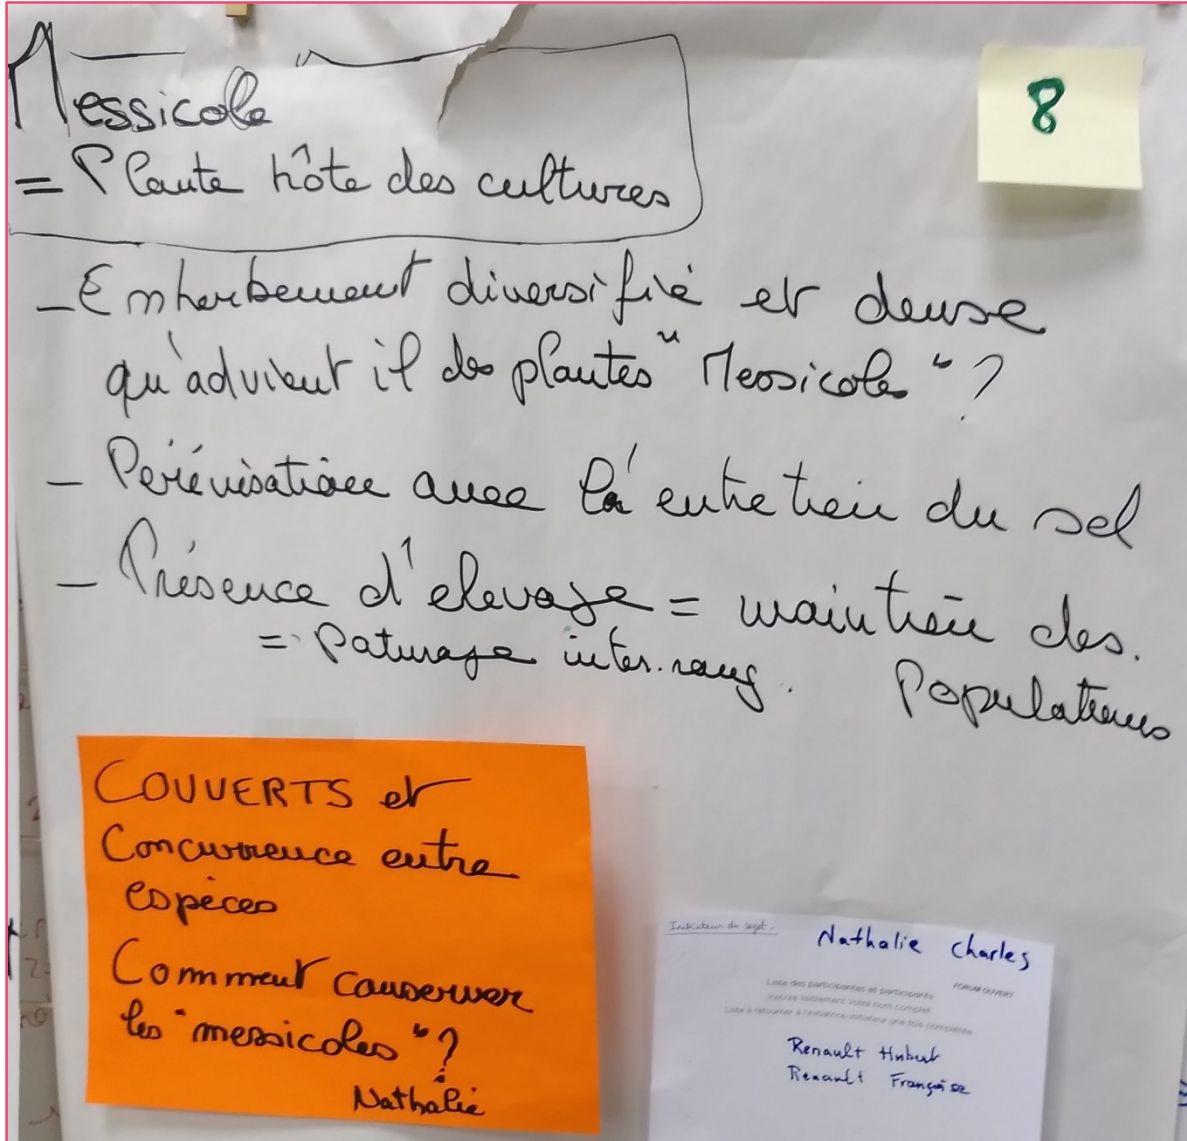 Messicole
= Plante hôte des cultures
8
- Enherbement diversifié et dense
qu'advient il des plantes "Messicoles" ?
- Pérénisation avec la entretien du sol
- Présence d'élevage = maintien des.
= Paturage inter.rang. Populations
COUVERTS et
Concurrence entre
espèces
Comment conserver
les "messicoles" ?
Nathalie
Initiateur du sujet.
Nathalie Charles
FORUM OUVERT
Liste des participantes et participants
Inscrire lisiblement votre nom complet
Liste à retourner à l'initiatrice-initiateur une fois complétée
Renault Hubert
Renault Françoise